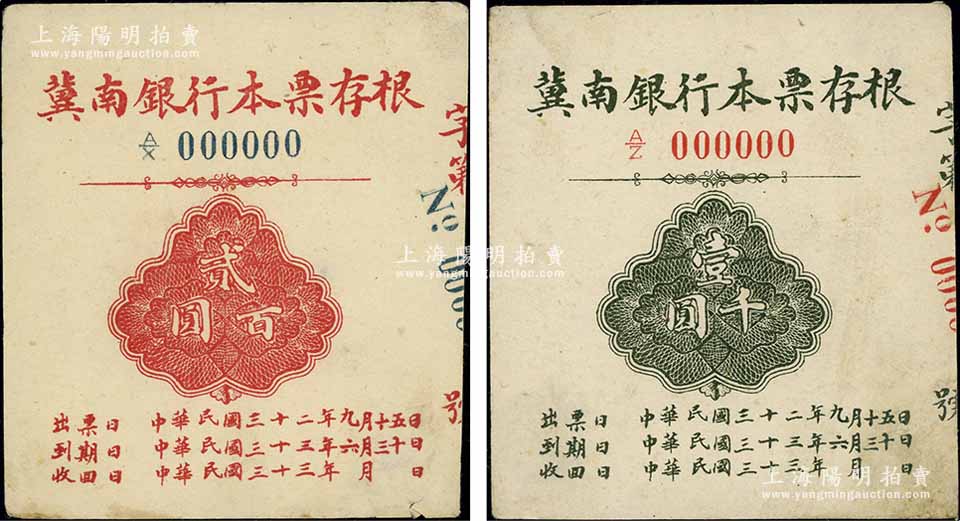 上海陽明拍賣
www.yangmingauction.com
冀南銀行本票存根
A/X 000000
字第
No. 000
號
貳百圓
出票日 中華民國三十二年九月十五日
到期日 中華民國三十三年六月三十日
收回日 中華民國三十三年 月 日
冀南銀行本票存根
A/Z 000000
字第
No. 000
號
壹千圓
出票日 中華民國三十二年九月十五日
到期日 中華民國三十三年六月三十日
收回日 中華民國三十三年 月 日
上海陽明拍賣
www.yangmingauction.com
上海陽明拍賣
www.yangmingauction.com